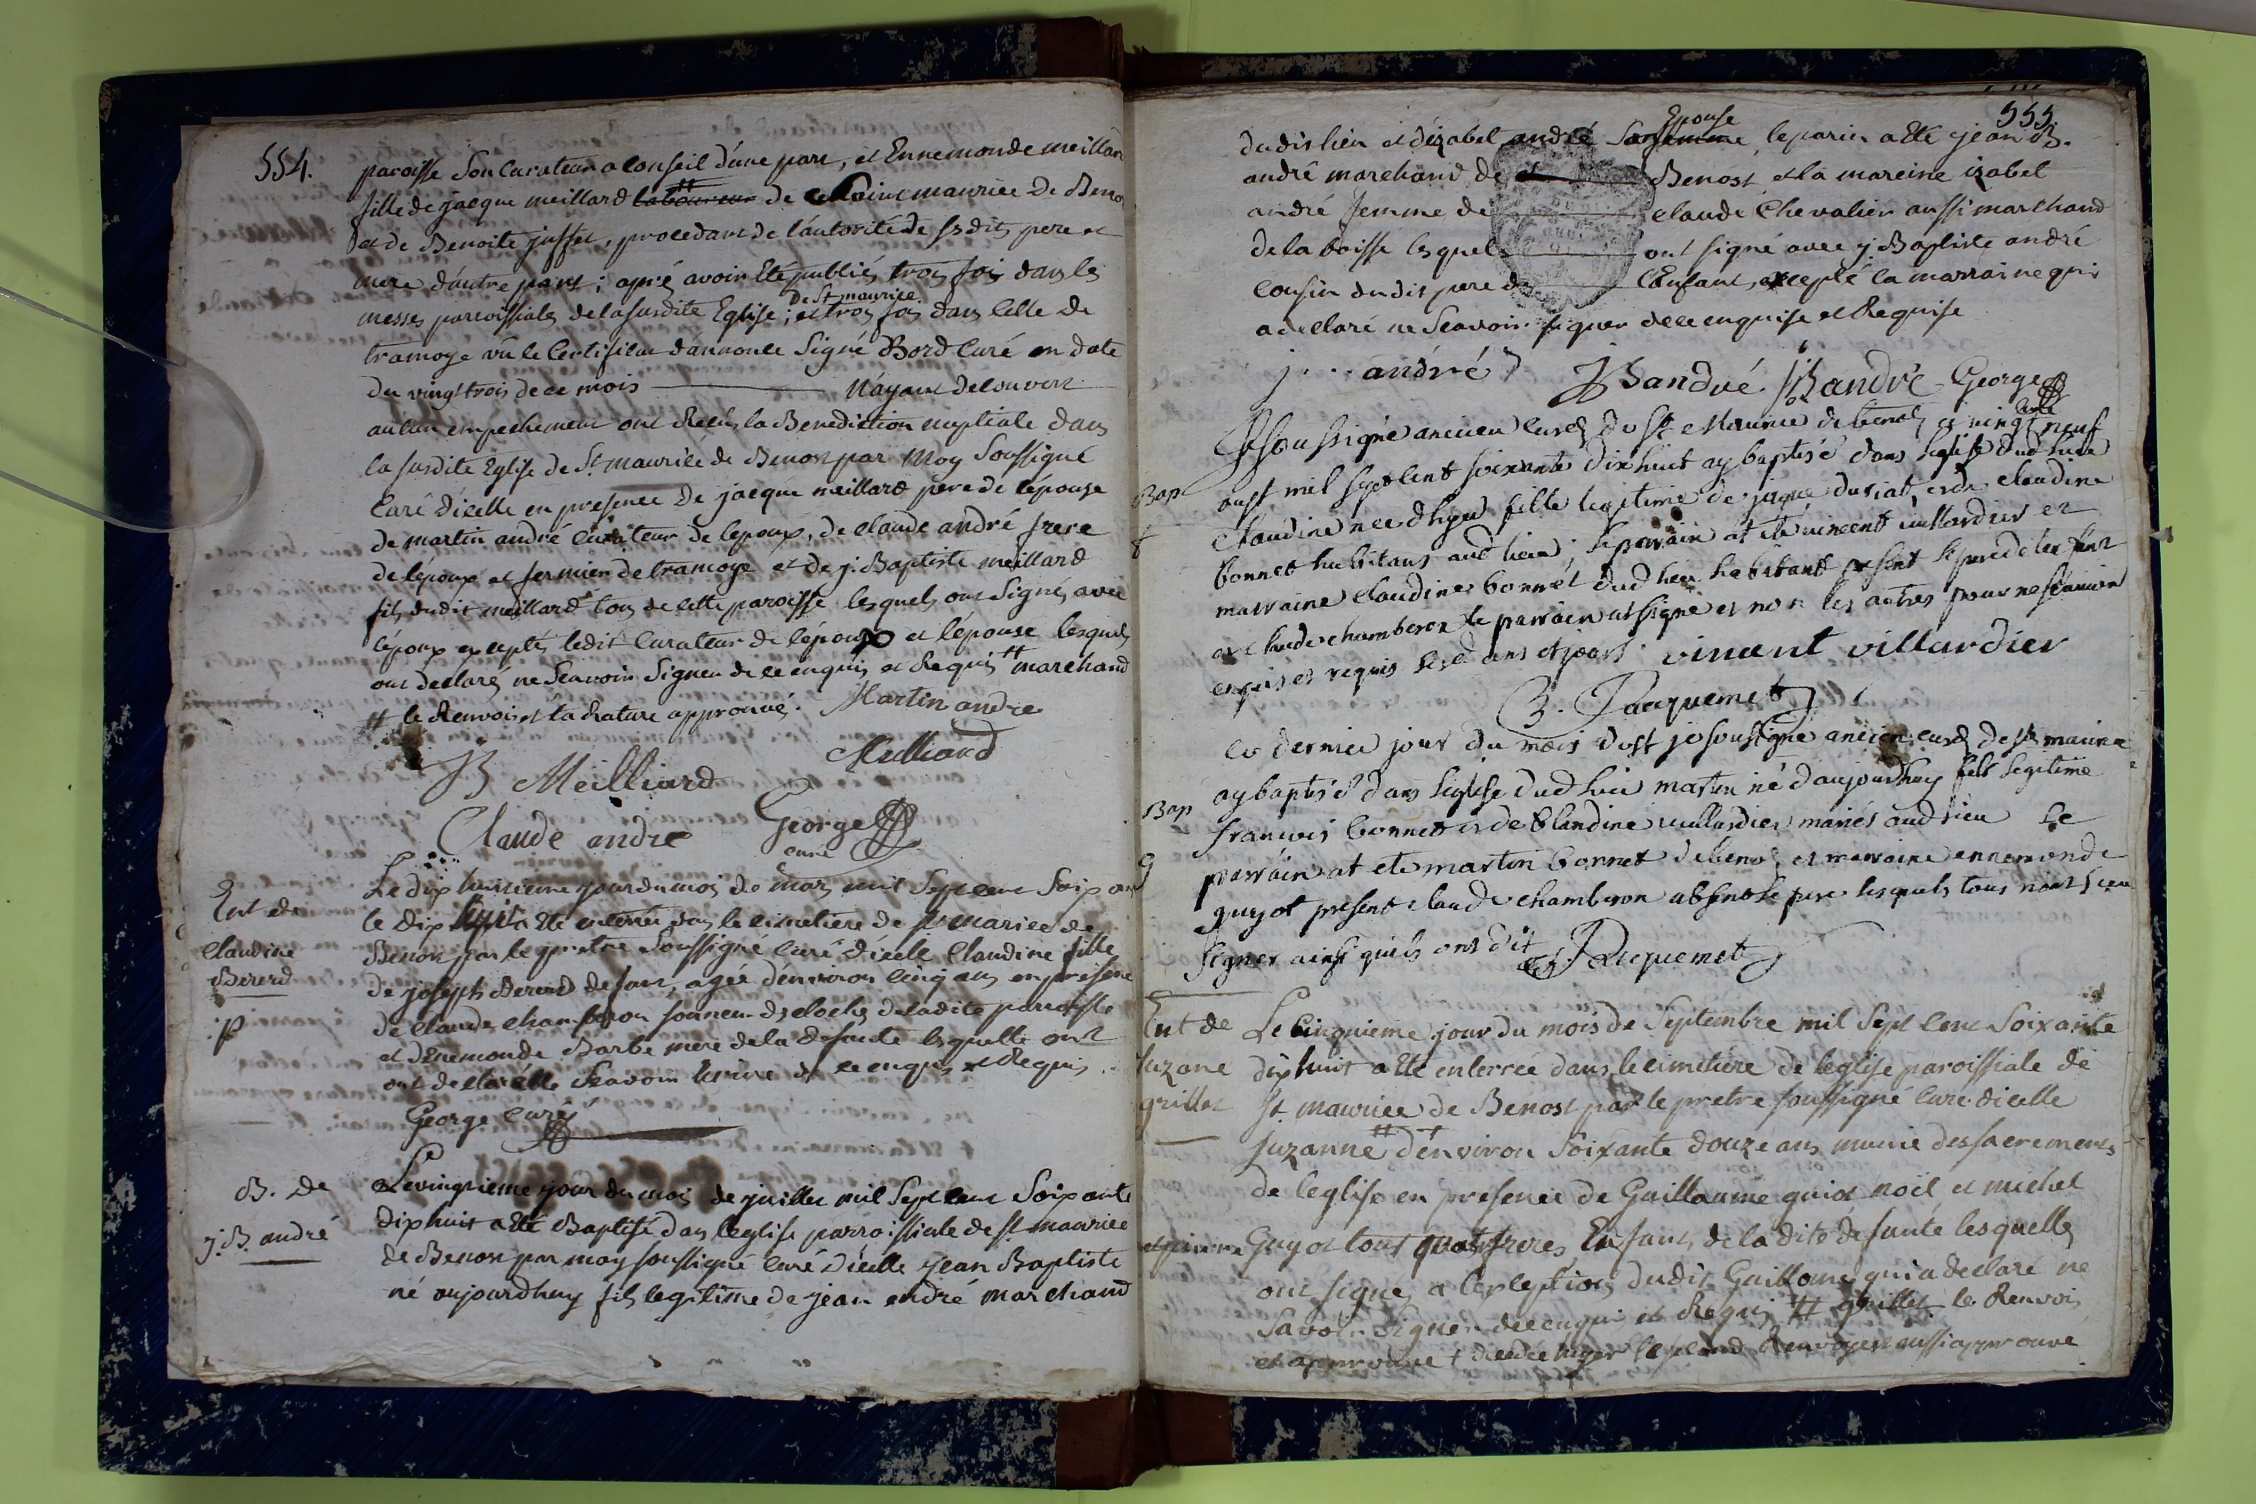 554.
paroisse Son Curateur a Conseil d'une part, et Ennemonde meillard
fille de jacque meillard laboureur ++ de Saint maurice de Beno
et de Benoite juffet, procedant de l'autorité de sesdits pere et
mere d'autre part ; apré avoir Eté publiés trois fois dans les
messes paroissiales de la susdite Eglise ; de St maurice et trois fois dans Celle de
tramoye vû le Certificat d'annonce Signé Bord Curé en date
du vingt trois de ce mois N'ayant decouvert
aucun empechement ont Recus la Benediction nuptiale dans
la susdite Eglise de St maurice de Benost par Moy Soussigné
Curé d'icelle en presence De jacque meillard pere de l'épouse
de martin andré Curateur de l'epoux, de claude andré frere
de l'époux et fermier de tramoye et de j. Baptiste meillard
fils dudit meillard tous de cette paroisse lesquels ont Signés avec
l'époux exceptés ledit Curateur de l'époux et l'épouse lesquels
ont declarés ne Scavoir Signer de ce enquis et Requis ++ marchand
++ le Renvois et la Rature approuvé. Martin andre
JB Meilliard Meilliard
Claude andre George
curé
Ent de
Claudine
Bererd
p
Le dix huitieme jour du mois de mars mil Sept cent Soixan
te dix huit a Eté enterrée dans le cimetiere de St maurice de
Benost par le pretre Soussigné Curé d'icelle Claudine fille
de joseph Bererd defunt, agée d'environ cinq ans en presence
de claude chamberon sonneur de cloches de la dite parroisse
et d'Enemonde Barbe mere de la defunte lesquelle ont
ont declaré ne Scavoir Ecrire de ce enquis et Requis
George Curé
B. de
j. B. andré
Le vingtieme jour du mois de juillet mil Sept cent Soixante
dix huit a Eté Baptisé dans l'eglise parroissiale de St maurice
de Benost par moy soussigné Curé d'icelle jean Baptiste
né aujourdhuy fils legitime de jean andré marchand
555.
dudit lieu et d'izabel andré Sa femme Epouse, le parin a Eté jean B.
andré marchand de Benost et la mareine izabel
andré femme de claude Chevalier aussi marchand
de la boisse lesquels ont signé avec j. Baptiste andré
cousin dudit pere de l'Enfant, excepté la marraine qui
a declaré ne Scavoir signer de ce enquise et Requise
j andré JBandré JBandré George
curé
Bap
Je soussigné ancien curé de St Maurice de benost ce vingt neuf
aust mil sept cent soixante dix huit ay baptisé dans leglise dud lieu
claudine nee d'hyer fille legitime de jaque duriat et de claudine
bonnet habitans aud lieu ; le parrain at eté vincent vuillardier et
marraine claudine bonnet dud lieu habitant present le pere de lenfant
et claude chamberon le parrain at signe et non les autres pour ne scavoir
enquis et requis lesd ans et jours vincent villardier
B. Jacquemet
Bap
g
ce dernier jour du mois d'ost je soussigne ancien curé de St maurice
ay baptisé dans leglise dud lieu martin né d'aujourdhuy fils legitime
francois bonnet et de blandine vuillardier mariés aud lieu le
parrain at eté martin bonnet de benost et marraine ennemonde
guyot present claude chamberon absent le pere lesquels tous n'ont sceu
signer ainsi quils ont dit B Jacquemet
Ent de
suzane
grillet
Le Cinquieme jour du mois de Septembre mil Sept Cent Soixante
dix huit a Eté enterrée dans le cimetiere de l'eglise paroissiale de
St maurice de Benost par le pretre soussigné Curé d'icelle
suzanne ++ + d'environ Soixante douze ans munie des sacrements
de l'eglise en presence de Guillaume guiot noël et michel
et pierre Guyot tous quatre freres Enfants de la dite defunte lesquelle
ont signé, a l'exception dudit Guillaume qui a declaré ne
Savoir Signer de ce enqui et Requi ++ grillet le Renvois
est approuvé + decedée hyer le second Renvoyé aussi approuvé